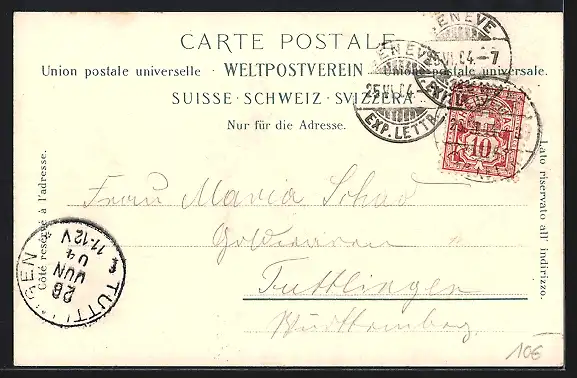 CARTE POSTALE
Union postale universelle · WELTPOSTVEREIN · Unione postale universale.
SUISSE · SCHWEIZ · SVIZZERA
Nur für die Adresse.
Côté réservé à l'adresse.
Lato riservato all' indirizzo.
GENEVE
VI.04.-7
GENEVE
25.VI.04.-
EXP. LETTR.
10
Frau Maria Schad
Tuttlingen
Württemberg
TUTTLINGEN
26
JUN
04
11-12V
10€